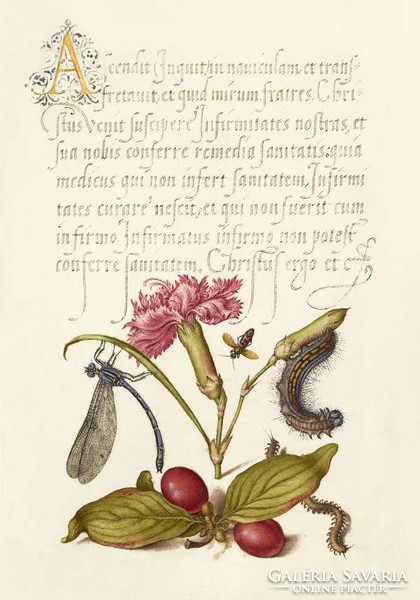 Ascendit Inquit in naviculam et trans-
fretavit, et quid mirum fratres. Chri-
stus venit suscipere Infirmitates nostras, et
sua nobis conferre remedia sanitatis: quia
medicus qui non infert sanitatem, Infirmi
tates curare nescit, et qui non fuerit cum
infirmo Infirmatus infirmo non potest
conferre sanitatem. Christus ergo et c
GALÉRIA SAVARIA
ONLINE PIACTÉR